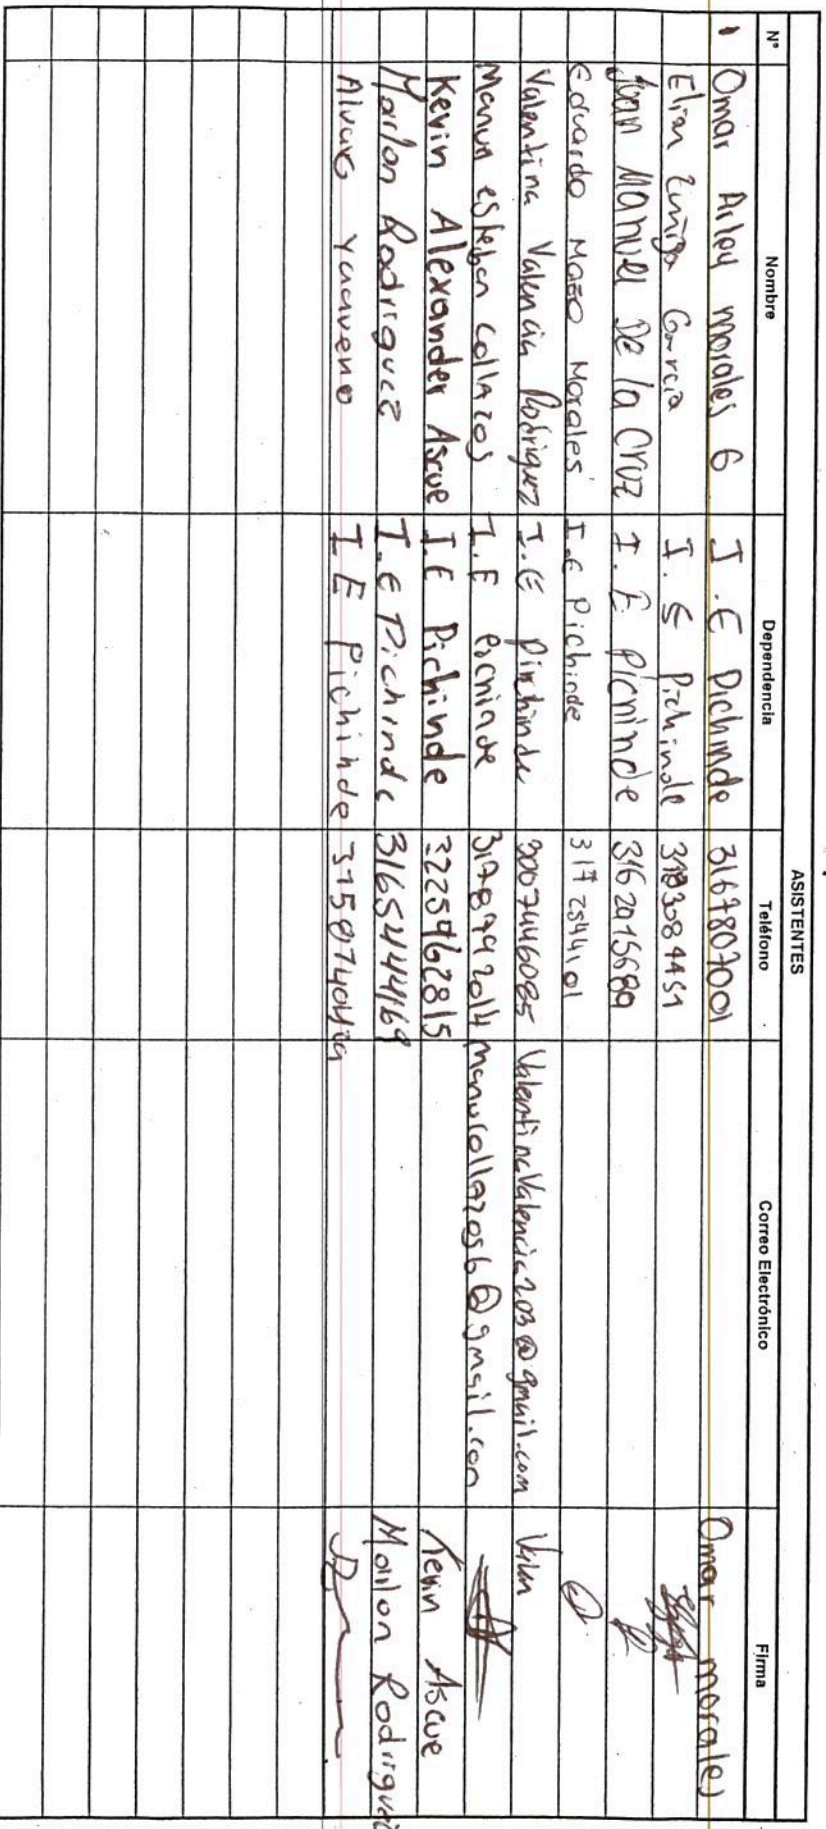 ASISTENTES
N° Nombre Dependencia Teléfono Correo Electrónico Firma
1 Omar Arley morales G I.E Pichinde 3167807001 Omar morales
Elian Zuñiga Garcia I.E Pichinde
Juan Manuel De la Cruz I.E Pichinde 3162015689
Eduardo Mazo Morales I.E Pichinde 3172544101
Valentina Valencia Rodriguez I.E pinchinde 3007446085 ValentinaValencia203@gmail.com Valen
Manun esteban collazos I.E pichinde 3178792014 manucollazos6@gmail.com
Kevin Alexander Ascue I.E Pichinde 3225962815 Kevin Ascue
Marlon Rodriguez I.E Pichinde 3165444169 Marlon Rodriguez
Alvaro I E Pichinde